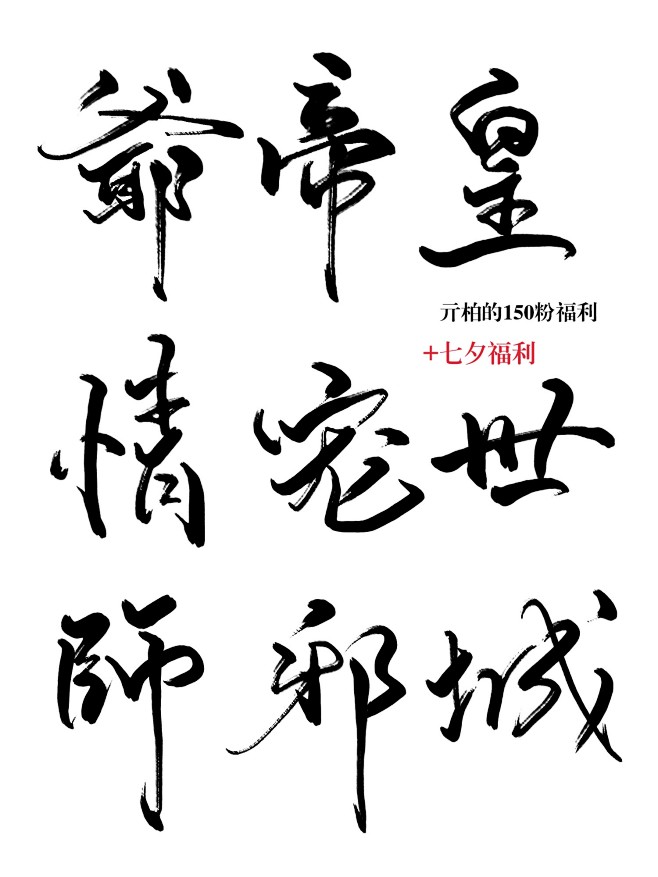 爺帝皇
亓柏的150粉福利
+七夕福利
情宠世
師邪城